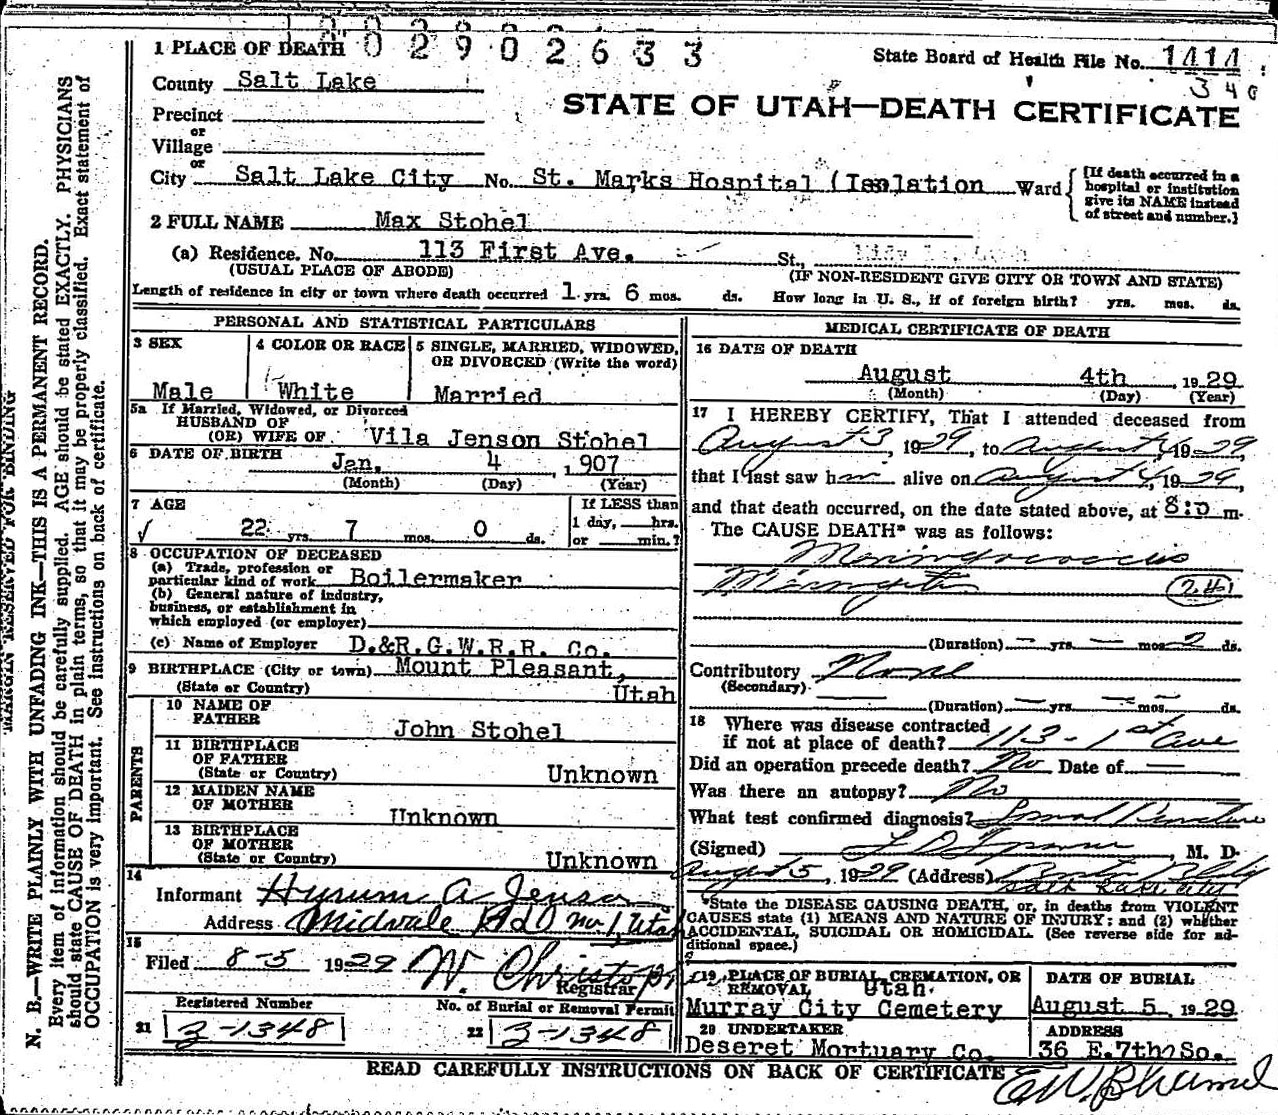 1 PLACE OF DEATH 0 2 9 0 2 6 3 3
State Board of Health File No. 1414
340
County Salt Lake
STATE OF UTAH—DEATH CERTIFICATE
Precinct
or
Village
or
City Salt Lake City No. St. Marks Hospital (Isolation Ward
[If death occurred in a hospital or institution give its NAME instead of street and number.]
2 FULL NAME Max Stohel
(a) Residence. No. 113 First Ave. St.,
(USUAL PLACE OF ABODE) (IF NON-RESIDENT GIVE CITY OR TOWN AND STATE)
Length of residence in city or town where death occurred 1 yrs. 6 mos. ds. How long in U. S., if of foreign birth? yrs. mos. ds.
PERSONAL AND STATISTICAL PARTICULARS
3 SEX
Male
4 COLOR OR RACE
White
5 SINGLE, MARRIED, WIDOWED, OR DIVORCED (Write the word)
Married
5a If Married, Widowed, or Divorced
HUSBAND OF
(OR) WIFE OF Vila Jenson Stohel
6 DATE OF BIRTH Jan. 4 1907
(Month) (Day) (Year)
7 AGE
22 yrs. 7 mos. 0 ds.
If LESS than
1 day, hrs.
or min.?
8 OCCUPATION OF DECEASED
(a) Trade, profession or
particular kind of work Boilermaker
(b) General nature of industry,
business, or establishment in
which employed (or employer)
(c) Name of Employer D.&R.G.W.R.R. Co.
9 BIRTHPLACE (City or town) Mount Pleasant,
(State or Country) Utah
PARENTS
10 NAME OF
FATHER John Stohel
11 BIRTHPLACE
OF FATHER
(State or Country) Unknown
12 MAIDEN NAME
OF MOTHER Unknown
13 BIRTHPLACE
OF MOTHER
(State or Country) Unknown
14
Informant Hyrum A. Jenson
Address Midvale RFD No 1, Utah
15
Filed 8-5 1929 W. Christopn
Registrar
Registered Number
21 3-1348
No. of Burial or Removal Permit
22 3-1348
MEDICAL CERTIFICATE OF DEATH
16 DATE OF DEATH
August 4th, 1929
(Month) (Day) (Year)
17 I HEREBY CERTIFY, That I attended deceased from
August 3, 1929, to August 4, 1929,
that I last saw him alive on August 4, 1929,
and that death occurred, on the date stated above, at m.
The CAUSE DEATH* was as follows:
Meningococcis
Meningitis
(Duration) — yrs. — mos. 2 ds.
Contributory None
(Secondary)
(Duration) — yrs. — mos. — ds.
18 Where was disease contracted
if not at place of death? 113 - 1st Ave
Did an operation precede death? No Date of —
Was there an autopsy? No
What test confirmed diagnosis? Spinal Puncture
(Signed) M. D.
August 5, 1929 (Address) Boston Bldg
Salt Lake City
*State the DISEASE CAUSING DEATH, or, in deaths from VIOLENT
CAUSES state (1) MEANS AND NATURE OF INJURY; and (2) whether
ACCIDENTAL, SUICIDAL OR HOMICIDAL. (See reverse side for ad-
ditional space.)
19 PLACE OF BURIAL, CREMATION, OR
REMOVAL Utah.
Murray City Cemetery
DATE OF BURIAL
August 5 1929
20 UNDERTAKER
Deseret Mortuary Co.
ADDRESS
36 E. 7th So.
READ CAREFULLY INSTRUCTIONS ON BACK OF CERTIFICATE
MARGIN RESERVED FOR BINDING
N. B.—WRITE PLAINLY WITH UNFADING INK—THIS IS A PERMANENT RECORD.
Every item of information should be carefully supplied. AGE should be stated EXACTLY. PHYSICIANS
should state CAUSE OF DEATH in plain terms, so that it may be properly classified. Exact statement of
OCCUPATION is very important. See instructions on back of certificate.